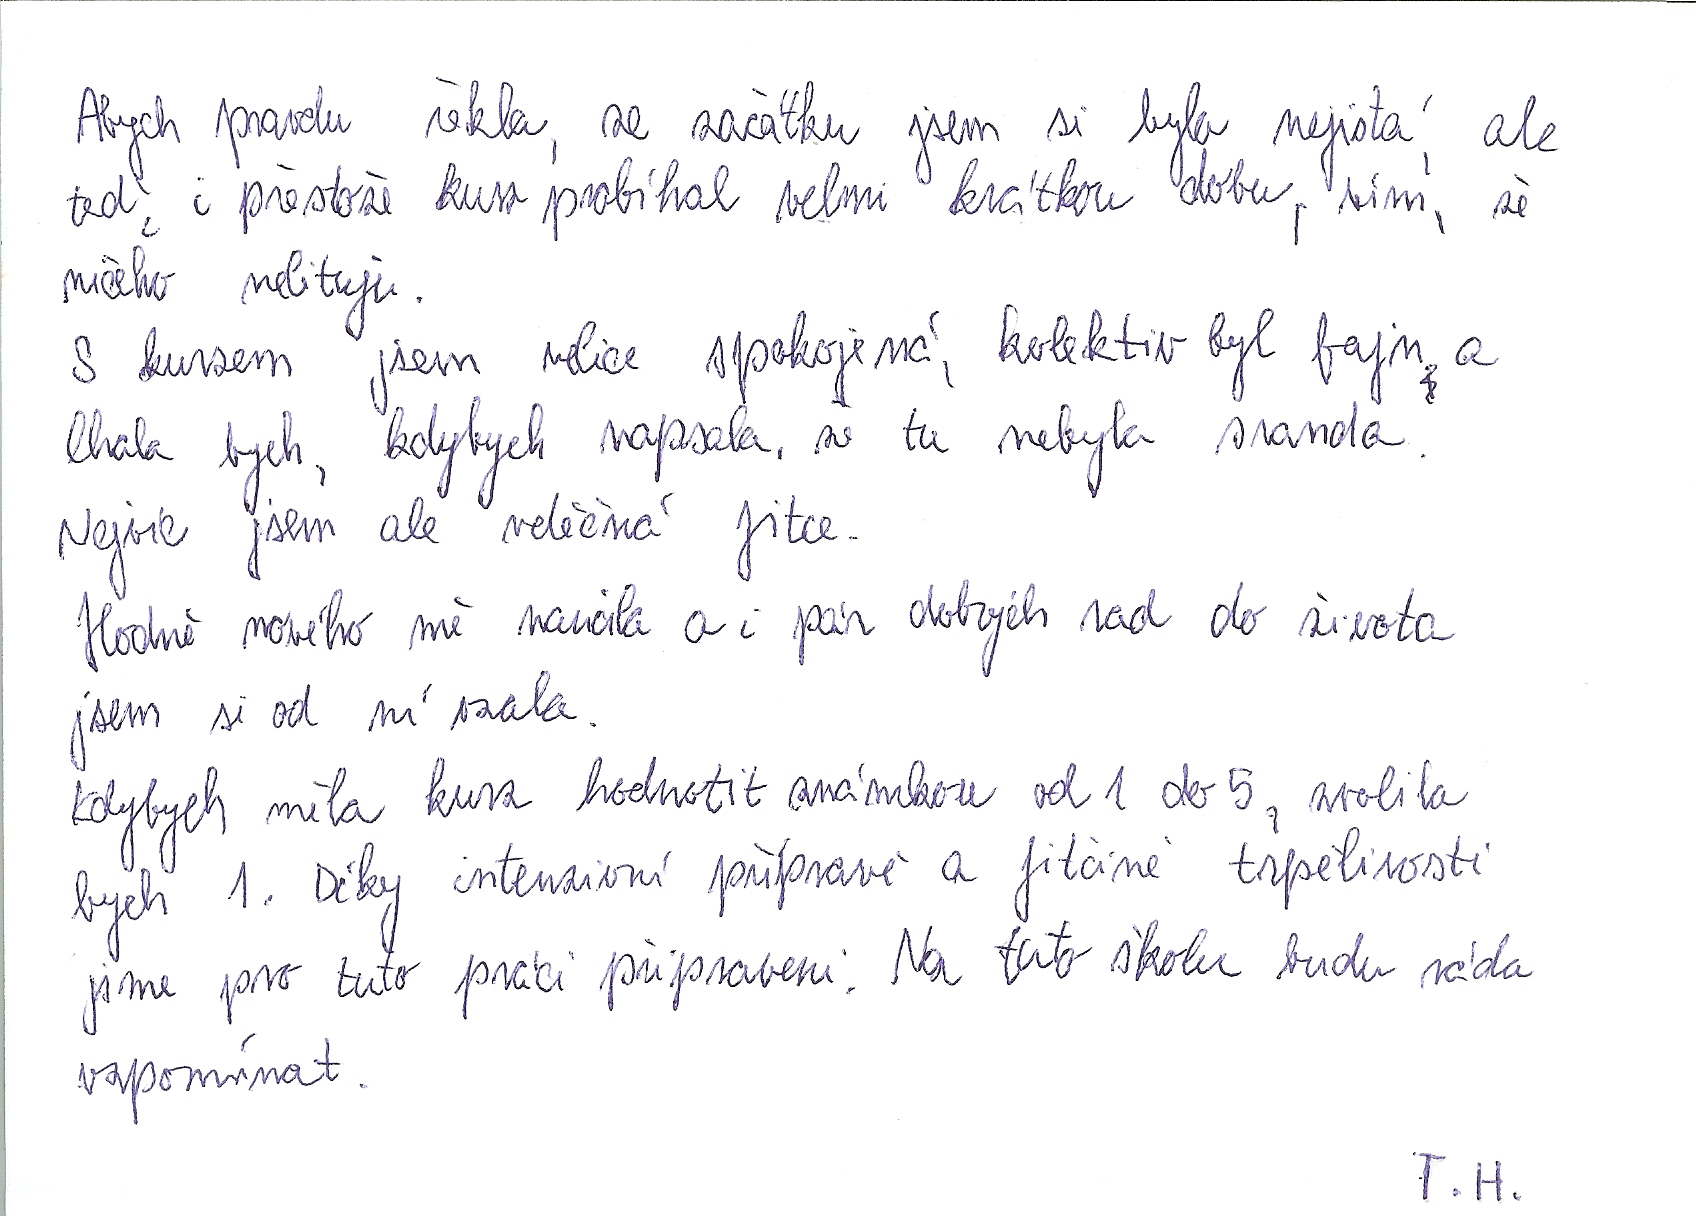 Abych pravdu řekla, ze začátku jsem si byla nejistá, ale
teď, i přestože kurz probíhal velmi krátkou dobu, vím, že
ničeho nelituju.
S kurzem jsem velice spokojená, kolektiv byl fajn, a
lhala bych, kdybych napsala, že tu nebyla sranda.
Nejvíc jsem ale vděčná Jitce.
Hodně nového mě naučila a i pár dobrých rad do života
jsem si od ní vzala.
Kdybych měla kurz hodnotit známkou od 1 do 5, zvolila
bych 1. Díky intenzivní přípravě a Jitčině trpělivosti
jsme pro tuto práci připraveni. Na tuto školu budu ráda
vzpomínat.
T.H.